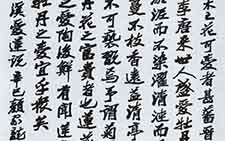 木之花可愛者甚蕃晉
李唐来世人盛愛牡丹
淤泥而不染濯清漣而
蔓不枝香遠益清亭
不可褻翫焉予謂菊
丹花之富貴者也蓮
之愛陶後鮮有聞蓮
牡丹之愛宜乎眾矣
溪愛蓮說 辛巳